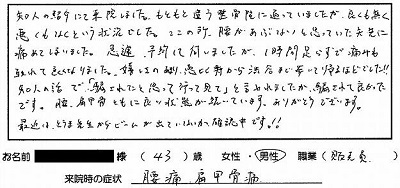 知人の紹介にて来院しました。もともと違う整骨院に通っていましたが、良くも無く
悪くもないという状況でした。ここの所、腰があぶないと思っていた矢先に
痛めてしまいました。急遽、予約に伺いましたが、1時間足らずで痛みも
取れて良くなりました。
知人の話で「騙されたと思って行って見て」と言われましたが、騙されて良かった
です。腰、肩甲骨ともに良い状態が続いています。ありがとうございます。
最近は、とうま先生からビームが出ていないか確認中です!!
お名前 様 (43)歳 女性・男性 職業(販売員)
来院時の症状 腰痛 肩甲骨痛